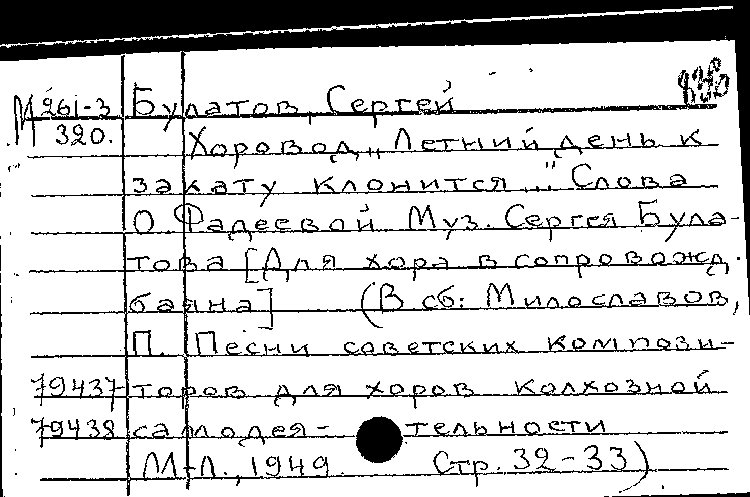 М 261-3 Булатов, Сергей
320. Хоровод „Летний день к
закату клонится..." Слова
О. Фадеевой Муз. Сергея Була-
това [Для хора в сопровожд.
баяна] (В сб: Милославов,
П. Песни советских компози-
79437 торов для хоров колхозной
79438 самодея- тельности
М-Л., 1949. Стр. 32-33)